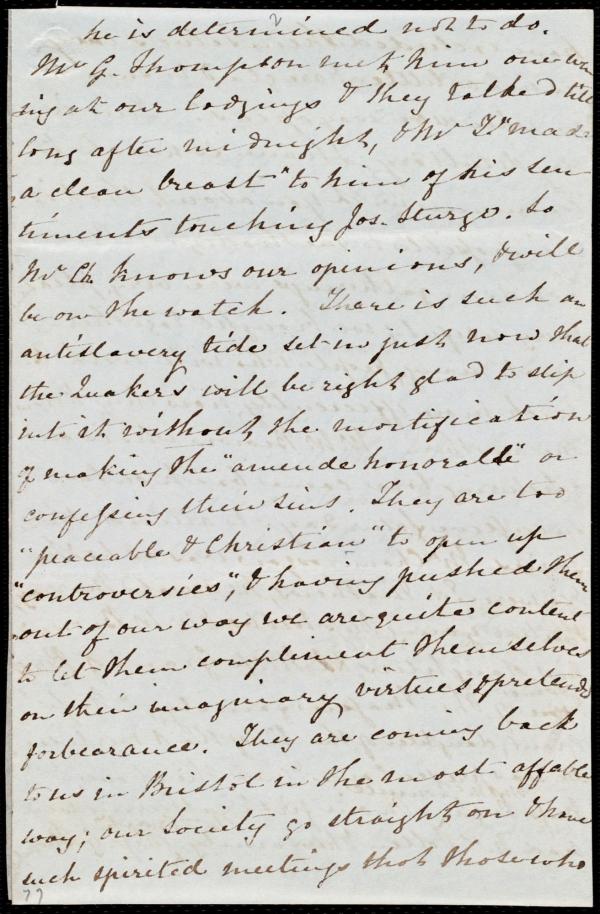 he is determined not to do.
Mr G. Thompson met him one eve
ing at our lodgings & they talked till
long after midnight, & Mr T. "made
a clean breast" to him of his sen
timents touching Jos. Sturge. So
Mr Ch. knows our opinions, & will
be on the watch. There is such an
antislavery tide set in just now that
the Quakers will be right glad to slip
into it without the mortification
of making the "amende honorable" or
confessing their sins. They are too
"peaceable & Christian" to open up
"controversies", & having pushed them
out of our way we are quite content
to let them compliment themselves
on their imaginary virtues & pretended
forbearance. They are coming back
to us in Bristol in the most affable
way; our Society go straight on & have
such spirited meetings that those who
77